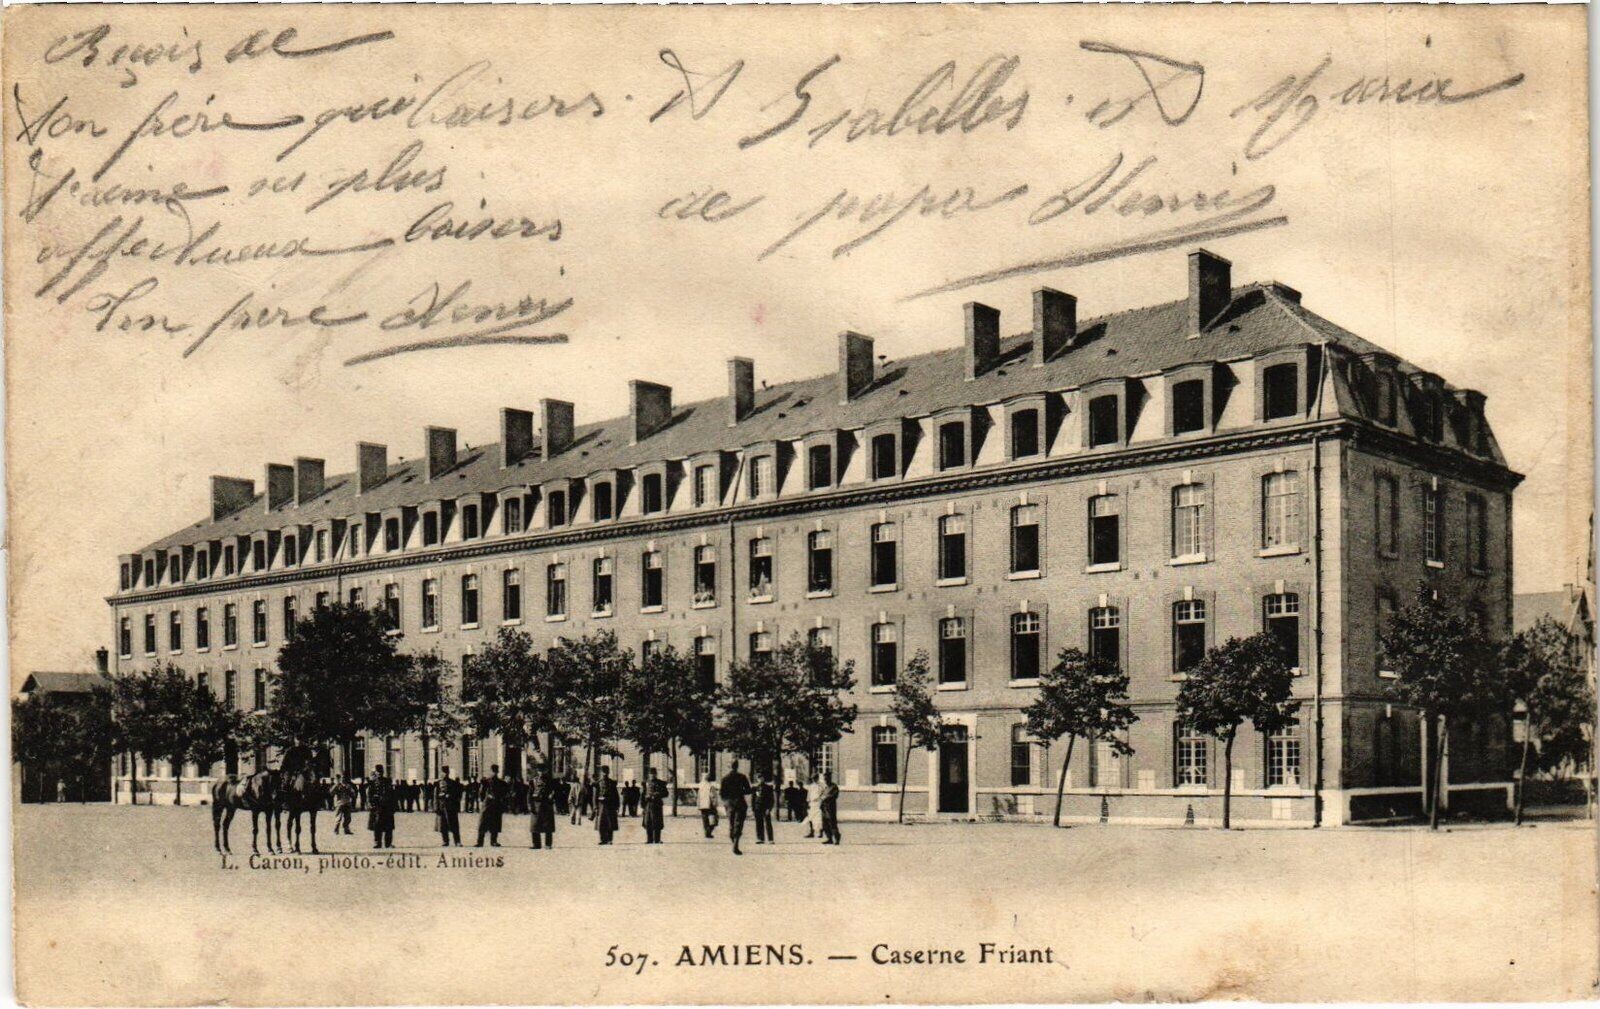 Reçois de
ton frère qui
t'aime ses plus
affectueux baisers
Ton frère Henri
baisers à Isabelles et Maria
de papa Henri
L. Caron, photo.-édit. Amiens
507. AMIENS. — Caserne Friant